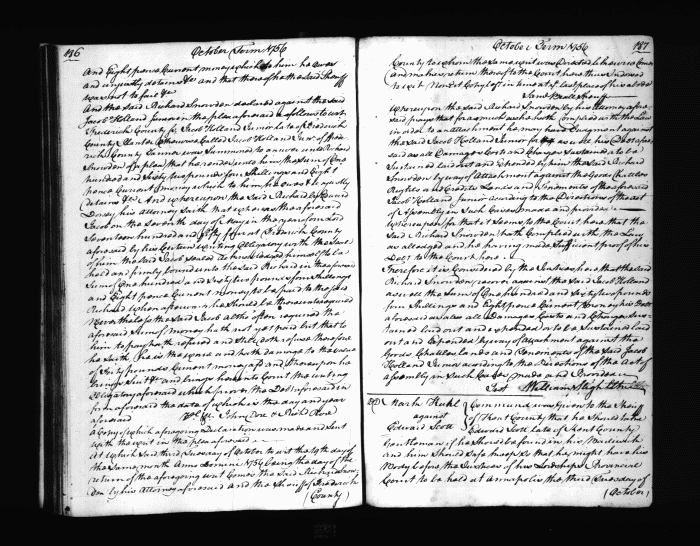 186
October Term 1756
And Eight pence Current money which to him he owes
and unjustly detains &c and that thereof he the said Sheriff
were not to fail &c
And the said Richard Snowden declares against the said
Jacob Holland Junior in the plea aforesaid as follows to wit
Frederick County Ss. Jacob Holland Junior late of Frederick
County Planter otherwise Called Jacob Holland Junr of Frede
rick County Tanner was Summoned to answer unto Richard
Snowden of a plea that he render unto him the Sum of One
hundred and Sixty Six pounds four Shillings and Eight
pence Current Money which to him he owes & unjustly
detains &c And whereupon the said Richard by
Dorsey his Attorney Saith that whereas the aforesaid
Jacob on the seventh day of May in the year of our Lord
Seventeen hundred and fifty at Frederick County
aforesaid by his Certain writing Obligatory with the Seal
of him the said Jacob Sealed acknowledged himself to be
held and firmly bound unto the said Richard in the aforesaid
Sum of One hundred and Sixty Six pounds four Shillings
and Eight pence Current money to be paid to the said
Richard when afterwards he should be thereunto required
Nevertheless the said Jacob altho often required the
aforesaid Sum of money hath not yet paid but that to
him to pay hath refused and still doth refuse therefore
he Saith he is the worse and hath damage to the value
of Sixty pounds Current money and thereupon he
brings Suit &c and brings here into Court the writing
Obligatory aforesaid which proves the Debt aforesaid in
form aforesaid the date of which is the day and year
aforesaid
John Doe & Richd Roe
a Copy of which aforegoing declaration was made and Sent
with the writ in the plea aforesaid
At which Said third Tuesday of October to wit the 19th day of
the Same month Anno Domini 1756 being the day of the
return of the aforegoing writ Comes the Said Richard Snow
den by his Attorney aforesaid and the Sheriff of Frederick
(County)
October Term 1756
187
County to whom the Same writ was Directed likewise Comes
and makes return thereof to the Court here thus Indorsed
to wit Non est Copy left in hands at last place of his abode
Whereupon the said Richard Snowden by his Attorney afore
said prays that for as much as he hath Complied with the Law
in order to an attachment he may have Judgment against
the said Jacob Holland Junior for as well his Debt afore
said as all Damages Costs and Charges Sustained to be
Sustained laid out and Expended by him the said Richard
Snowden by way of attachment against the Goods Chattles
Rights and Credits Lands and Tenements of the aforesaid
Jacob Holland Junior according to the Directions of the act
of Assembly in Such Cases made and provided
Whereupon for that it Seems to the Court here that the
said Richard Snowden hath Complied with the Law
as alledged and he having made Sufficient proof of his
Debt to the Court here
Therefore it is Considered by the Justices here that the said
Richard Snowden recover against the said Jacob Holland
as well the Sum of One hundred and Sixty six pounds
four Shillings and Eight pence Current Money his Debt
aforesaid as also all Damages Costs and Charges Sus
tained laid out and expended or to be Sustained laid
out and Expended by way of attachment against the
Goods Chattles Lands and Tenements of the said Jacob
Holland Junior according to the Directions of the act of
assembly in Such Cases made and Provided
Test William
Mark Kuhl
against
Edward Scott
Command was given to the Sheriff
of Kent County that he Should take
Edward Scott late of Kent County
Gentleman if he Should be found in his Bailiwick
and him Should Safe keep So that he might have his
Body before the Justices of his Lordships Provincial
Court to be held at Annapolis the third Tuesday of
(October)